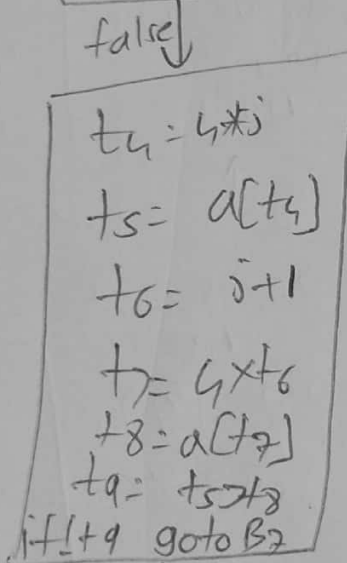 false
t4 = 4*j
t5 = a[t4]
t6 = j+1
t7 = 4*t6
t8 = a[t7]
t9 = t5>t8
if!t9 goto B7